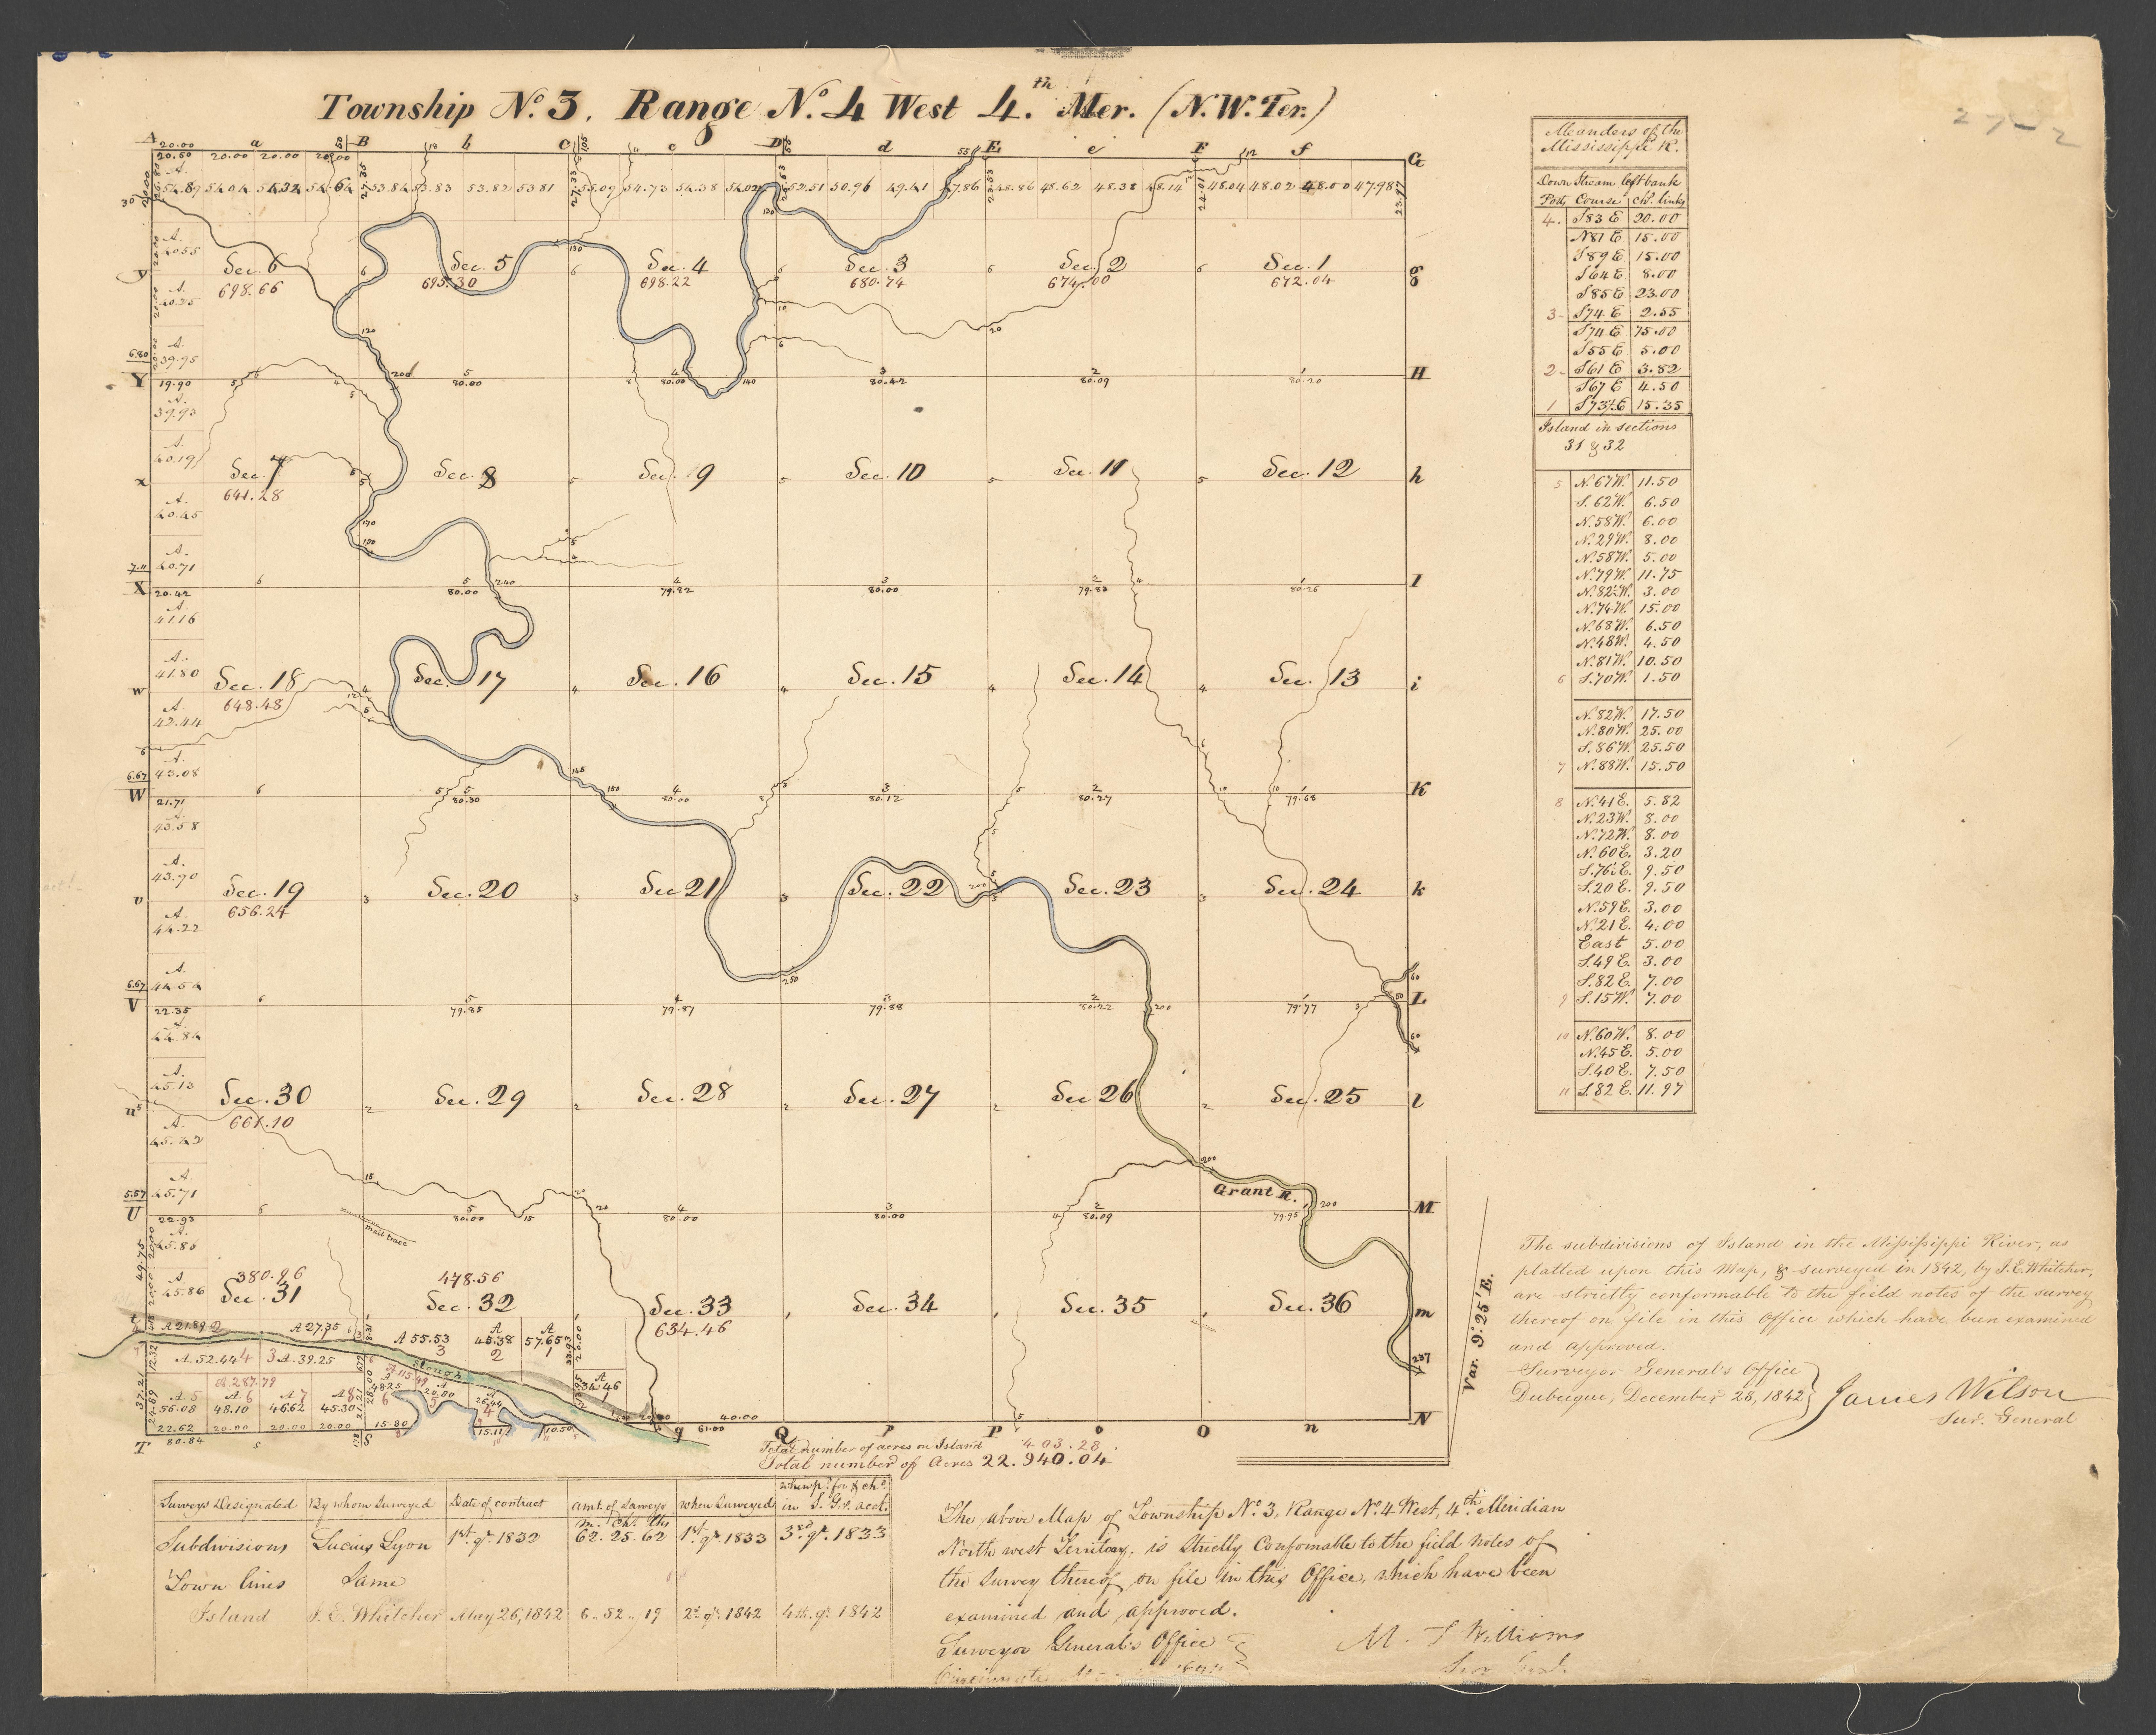 Township No. 3, Range No. 4 West 4.th Mer. (N.W. Ter.)
A 20.00 a B b C c D d E e F f G
20.50 20.00 20.00 20.00
54.89 54.04 54.32 54.64 53.84 53.83 53.82 53.81 55.09 54.73 54.38 54.02 52.51 50.96 49.41 47.86 48.86 48.62 48.38 48.14 48.04 48.02 48.00 47.98
Sec. 6 Sec. 5 Sec. 4 Sec. 3 Sec. 2 Sec. 1 g
698.66 695.30 698.22 680.74 674.00 672.04
A. 39.95
6.80
Y 19.90 80.00 80.00 80.42 80.09 80.20 H
A. 39.93
A. 40.19
x Sec. 7 Sec. 8 Sec. 9 Sec. 10 Sec. 11 Sec. 12 h
641.28
A. 40.45
A. 40.71
7.11
X 20.42 80.00 79.82 80.00 79.83 80.26 I
A. 41.16
A. 41.80
w Sec. 18 Sec. 17 Sec. 16 Sec. 15 Sec. 14 Sec. 13 i
648.48
A. 42.44
A. 43.08
6.67
W 21.71 80.30 80.00 80.12 80.27 79.68 K
A. 43.58
A. 43.90
v Sec. 19 Sec. 20 Sec 21 Sec. 22 Sec. 23 Sec. 24 k
656.24
A. 44.22
A. 44.54
6.67
V 22.35 79.85 79.87 79.88 80.22 79.77 L
A. 44.84
A. 45.13
Sec. 30 Sec. 29 Sec. 28 Sec. 27 Sec 26 Sec. 25 l
661.10
A. 45.42
A. 45.71
Grant R.
5.57
U 22.93 80.00 80.00 80.00 80.09 79.95 M
mail trace
A. 45.86
A. 45.86
380.96 478.56
Sec. 31 Sec. 32 Sec. 33 Sec. 34 Sec. 35 Sec. 36 m
634.46
A 21.89 2 A 27.35 A 55.53 3 A 45.38 2 A 57.65 1
A. 52.44 4 3 A. 39.25 Slough
A. 287.79 A 115.49 A 34.46 1
A. 5 56.08 A 6 48.10 A. 7 46.62 A 8 45.30 A 48.25 6 A 20.80 5 A 26.44 4
22.62 20.00 20.00 20.00 15.80 15.11 10.50 61.00 40.00 N
T 80.84 S q Q P P o O n
Total number of acres on Island 403.28
Total number of Acres 22.940.04
Var. 9°.25' E.
Meanders of the
Mississippi R.
Down Stream left bank
Post Course ch. links
4. S83 E 20.00
N81 E 15.00
S89 E 15.00
S64 E 8.00
S85 E 23.00
3- S74 E 2.55
S74 E 75.00
S55 E 5.00
2- S61 E 3.82
S67 E 4.50
1 S73½E 15.35
Island in sections
31 & 32
5 N. 67 W. 11.50
S. 62 W. 6.50
N. 58 W. 6.00
N. 29 W. 8.00
N. 58 W. 5.00
N. 79 W. 11.75
N. 82½ W. 3.00
N. 74 W. 15.00
N. 68 W. 6.50
N. 48 W. 4.50
N. 81 W. 10.50
6 S. 70 W. 1.50
N. 82 W. 17.50
N. 80 W. 25.00
S. 86 W. 25.50
7 N. 88 W. 15.50
8 N. 41 E. 5.82
N. 23 W. 8.00
N. 72 W. 8.00
N. 60 E. 3.20
S. 76½ E. 9.50
S. 20 E. 9.50
N. 59 E. 3.00
N. 21 E. 4.00
East 5.00
S. 49 E. 3.00
S. 82 E. 7.00
9 S. 15 W. 7.00
10 N. 60 W. 8.00
N. 45 E. 5.00
S. 40 E. 7.50
11 S. 82 E. 11.97
The subdivisions of Island in the Mississippi River, as
platted upon this Map, & surveyed in 1842, by J. E. Whitcher,
are strictly conformable to the field notes of the survey
thereof on file in this Office which have been examined
and approved.
Surveyor General's Office
Dubuque, December 28, 1842 James Wilson
Sur. General
Surveys Designated By whom Surveyed Date of contract amt. of Surveys when Surveyed when pd. for & chd. in S. G's. acct.
m. chs. lks
Subdivisions Lucius Lyon 1st. qr. 1832 62.25.62 1st. qr. 1833 3rd. qr. 1833
Town lines Same
Island J. E. Whitcher May 26, 1842 6..52..19 2d. qr. 1842 4th. qr. 1842
The above Map of Township No. 3, Range No. 4 West, 4th. Meridian
North west Territory, is Strictly Conformable to the field notes of
the Survey thereof on file in this Office, which have been
examined and approved.
Surveyor General's Office
M. T. Williams
Sur. Genl.